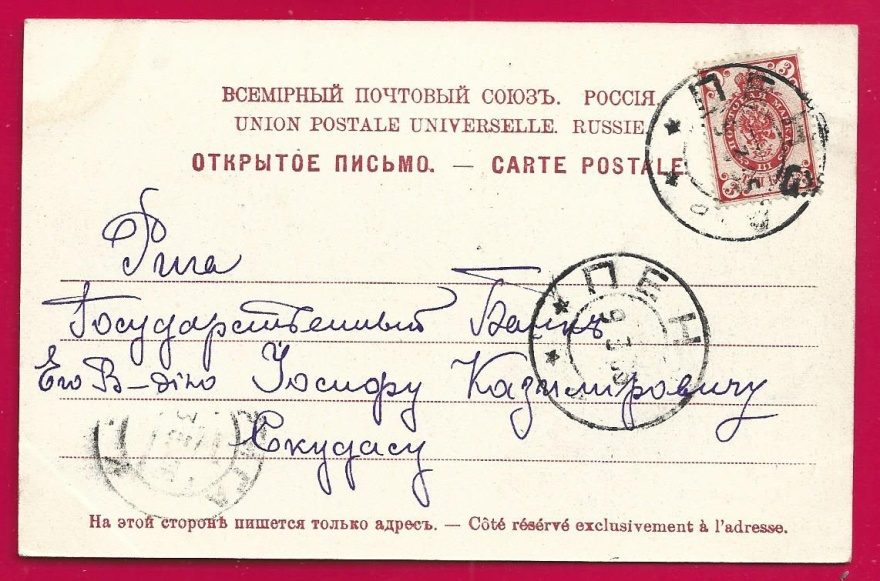 ВСЕМІРНЫЙ ПОЧТОВЫЙ СОЮЗЪ. РОССІЯ.
UNION POSTALE UNIVERSELLE. RUSSIE.
ОТКРЫТОЕ ПИСЬМО. — CARTE POSTALE.
3 3
3
ПЕН
Рига
Государственный Банкъ
ПЕН
Его В-дію Іосифу Казимировичу
Скудасу
На этой сторонѣ пишется только адресъ. — Côté résérvé exclusivement à l'adresse.